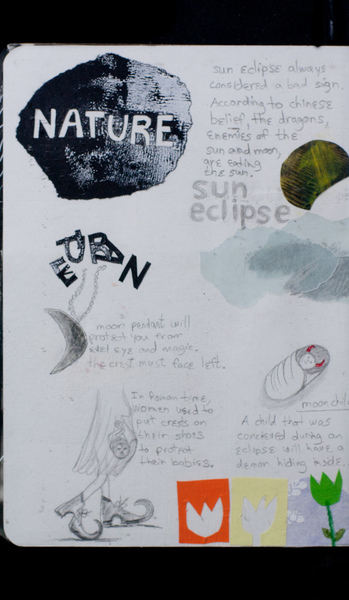 NATURE
sun eclipse always
considered a bad sign.
According to chinese
belief, the dragons,
enemies of the
sun and moon,
are eating
the sun.
sun
eclipse
moon pendant will
protect you from
evel eye and magic.
the crest must face left.
In Roman time,
women used to
put crests on
their shoes
to protect
their babies.
moon chil
A child that was
concieved during an
eclipse will have a
demon hiding inside.